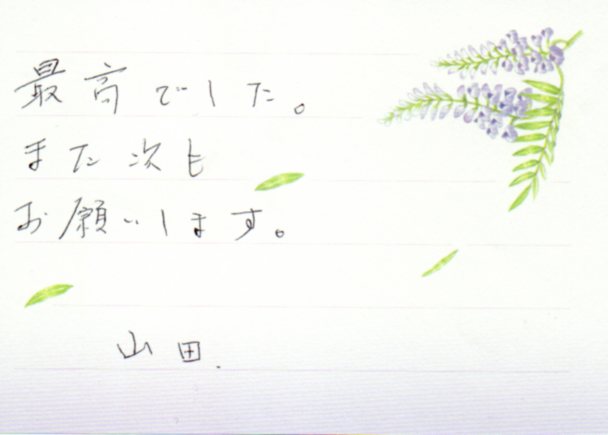 最高でした。
また次も
お願いします。
山田.